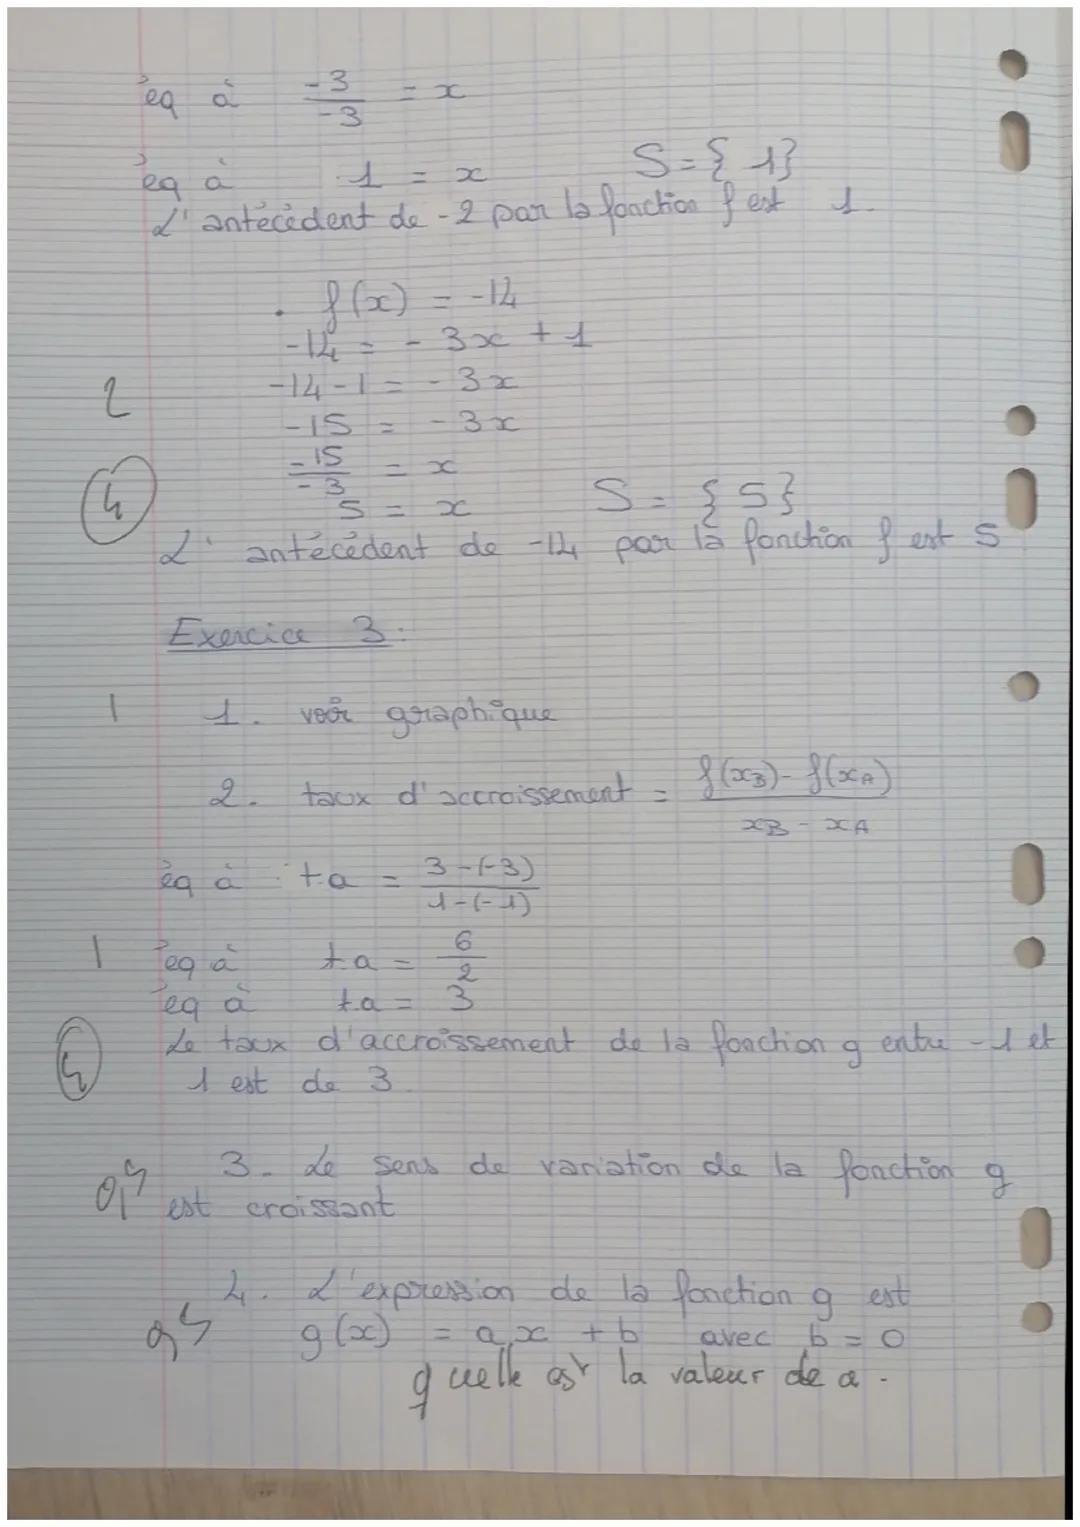 éq à -3/-3 = x
éq à 1 = x S = { 1 }
L'antécédent de -2 par la fonction f est 1.
. f(x) = -14
-14 = -3x + 1
2 -14-1 = -3x
-15 = -3x
-15/-3 = x
4 5 = x S = { 5 }
L'antécédent de -14 par la fonction f est 5
Exercice 3 :
1 1. voir graphique
2. taux d'accroissement = f(xB) - f(xA) / xB - xA
éq à t.a = 3-(-3) / 1-(-1)
1 éq à t.a = 6/2
éq à t.a = 3
Le taux d'accroissement de la fonction g entre -1 et
1 est de 3.
3. Le sens de variation de la fonction g
0,5 est croissant
4. L'expression de la fonction g est
0,5 g(x) = ax + b avec b = 0
quelle est la valeur de a.